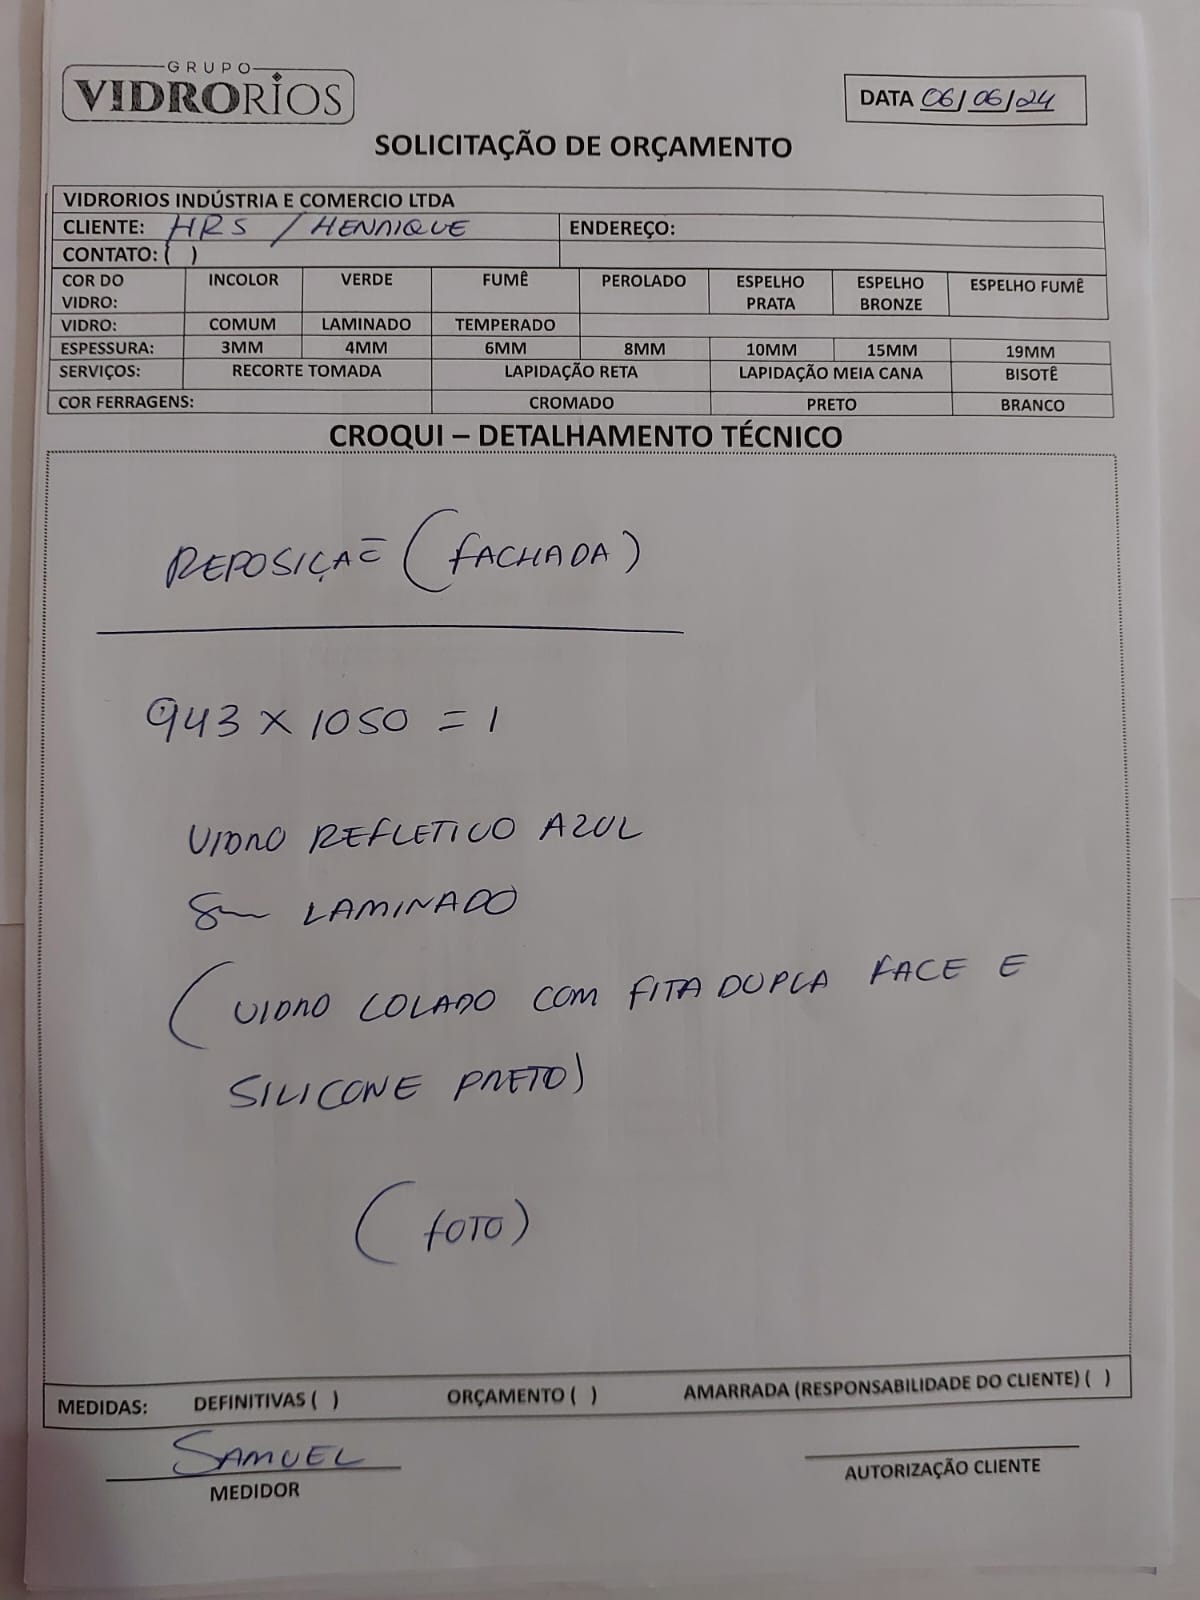 GRUPO
VIDRORIOS
DATA 06/06/24
SOLICITAÇÃO DE ORÇAMENTO
VIDRORIOS INDÚSTRIA E COMERCIO LTDA
CLIENTE: HRS / HENRIQUE ENDEREÇO:
CONTATO: ( )
COR DO VIDRO: INCOLOR VERDE FUMÊ PEROLADO ESPELHO PRATA ESPELHO BRONZE ESPELHO FUMÊ
VIDRO: COMUM LAMINADO TEMPERADO
ESPESSURA: 3MM 4MM 6MM 8MM 10MM 15MM 19MM
SERVIÇOS: RECORTE TOMADA LAPIDAÇÃO RETA LAPIDAÇÃO MEIA CANA BISOTÊ
COR FERRAGENS: CROMADO PRETO BRANCO
CROQUI – DETALHAMENTO TÉCNICO
REPOSIÇÃO (FACHADA)
943 X 1050 = 1
VIDRO REFLETIVO AZUL
8mm LAMINADO
(VIDRO COLADO COM FITA DUPLA FACE E
SILICONE PRETO)
(FOTO)
MEDIDAS: DEFINITIVAS ( ) ORÇAMENTO ( ) AMARRADA (RESPONSABILIDADE DO CLIENTE) ( )
SAMUEL
MEDIDOR
AUTORIZAÇÃO CLIENTE